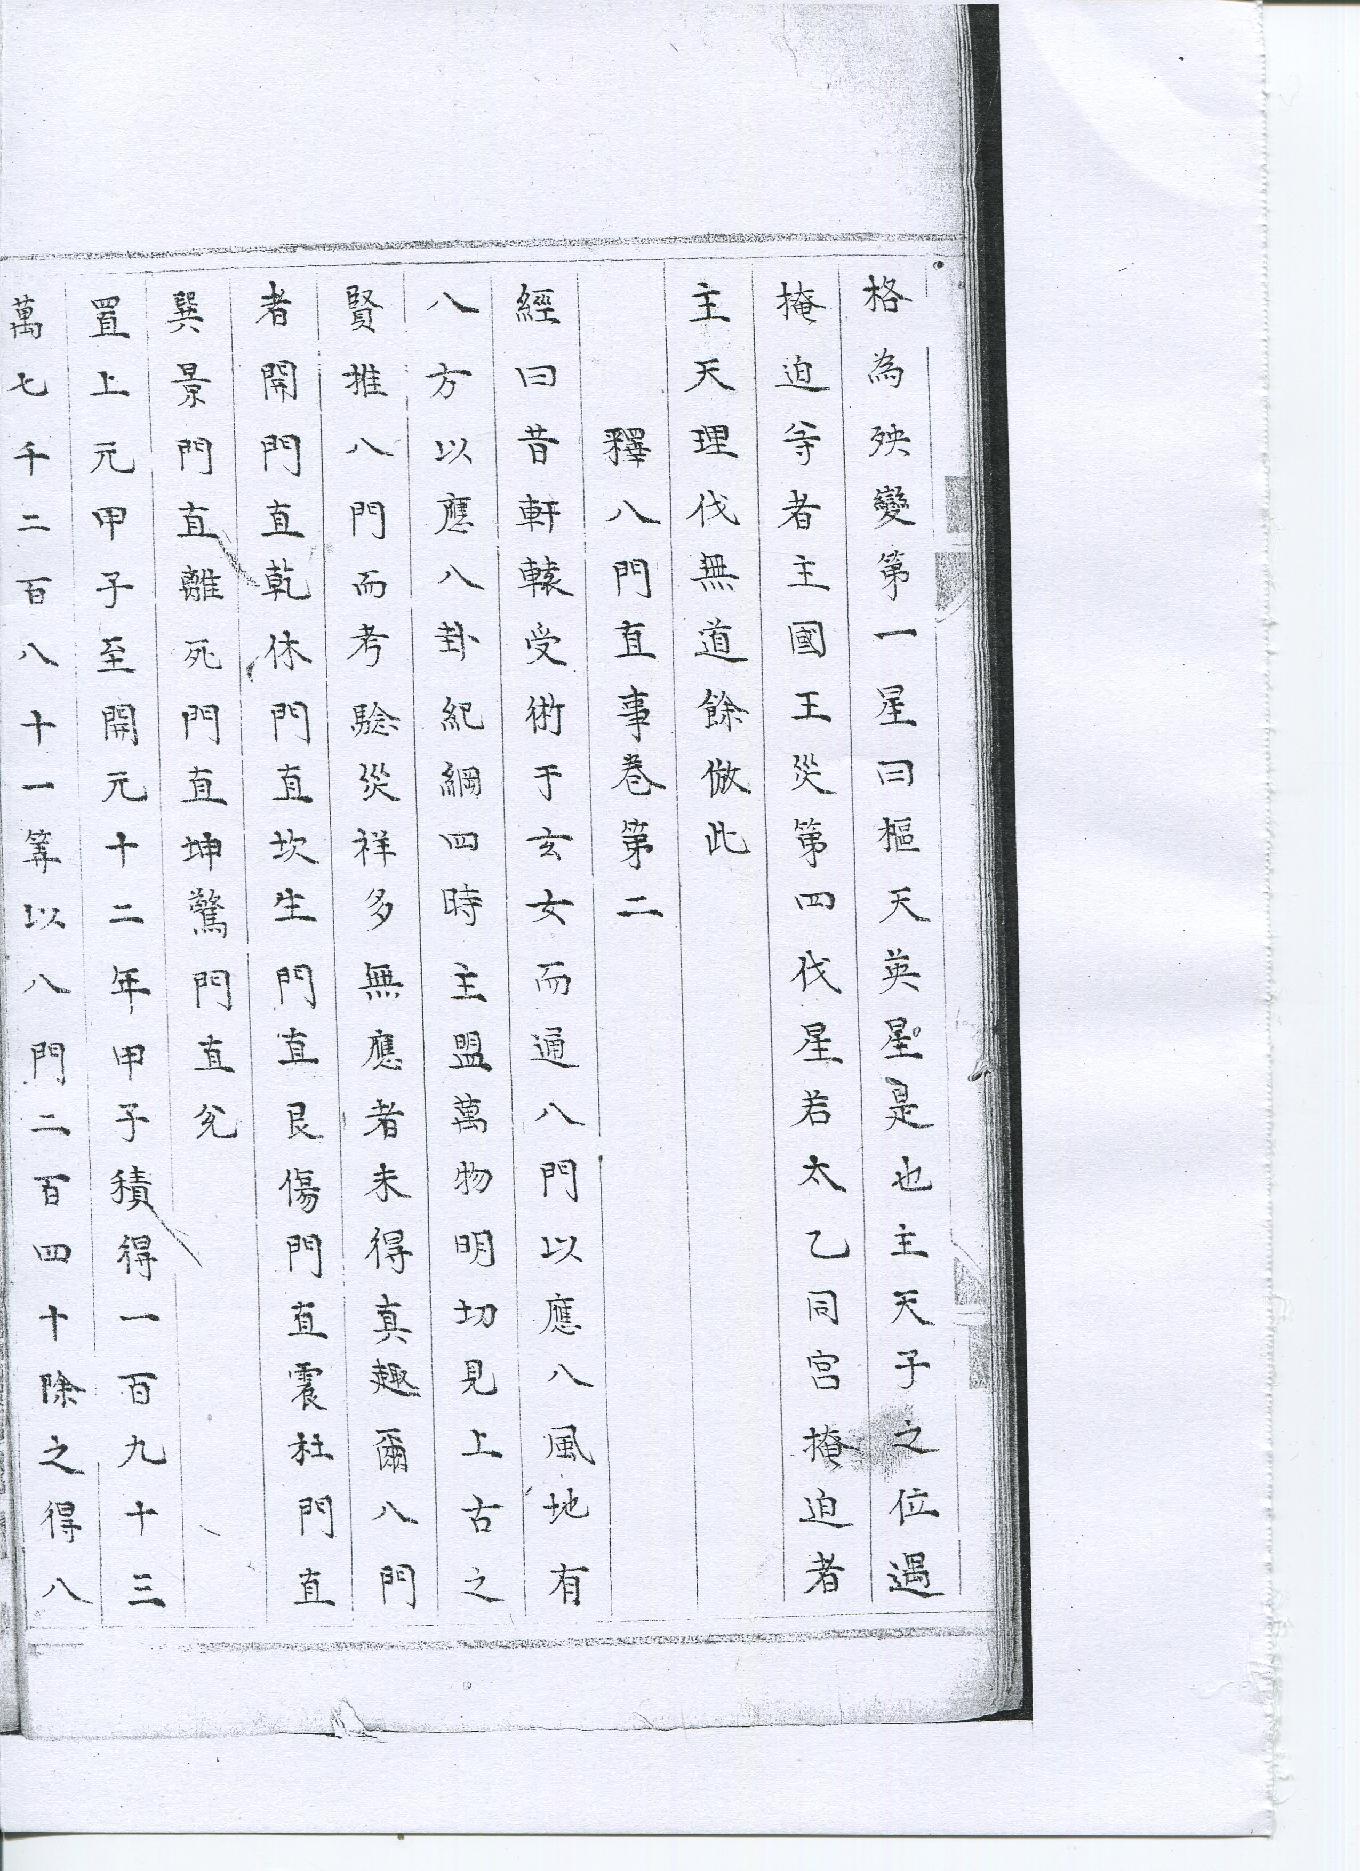 格為殃變第一星曰樞天英星是也主天子之位遇
掩迫等者主國王災第四伐星若太乙同宮掩迫者
主天理伐無道餘倣此
釋八門直事卷第二
經曰昔軒轅受術于玄女而通八門以應八風地有
八方以應八卦紀綱四時主盟萬物明切見上古之
賢推八門而考驗災祥多無應者未得真趣爾八門
者開門直乾休門直坎生門直艮傷門直震杜門直
巽景門直離死門直坤驚門直兊
置上元甲子至開元十二年甲子積得一百九十三
萬七千二百八十一筭以八門二百四十除之得八